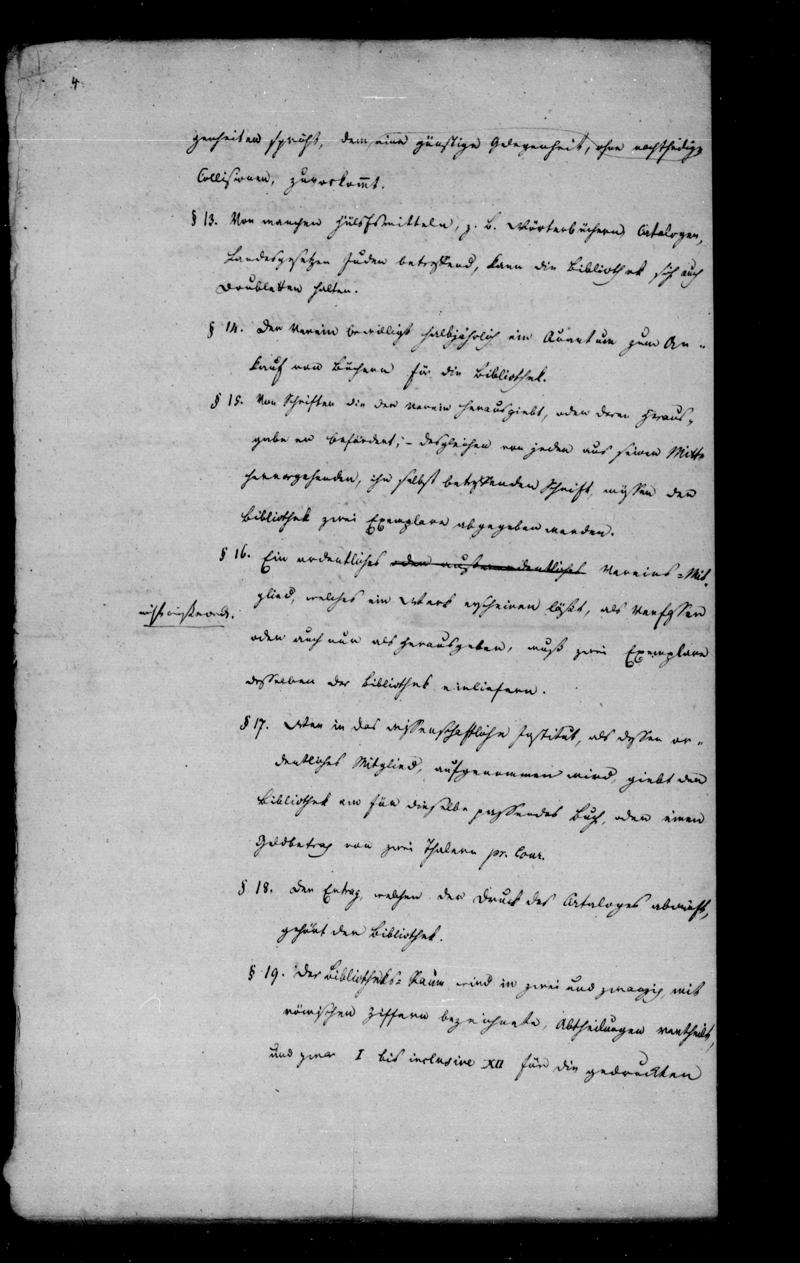 4
genheiten spricht, dem eine günstige Gelegenheit, ohne nachtheilige
Collisionen, zuvorkom̅t.
§ 13. Von manchen Hülfsmitteln, z. B. Wörterbüchern, Catalogen,
Landesgesetzen Juden betreffend, kann die Bibliothek sich auch
Doubletten halten.
§ 14. Der Verein bewilligt halbjährlich ein Quantum zum An-
kauf von Büchern für die Bibliothek.
§ 15. Von Schriften die der Verein herausgiebt, oder deren Heraus-
gabe er befördert; – desgleichen von jeder aus seiner Mitte
hervorgehenden, ihn selbst betreffenden Schrift, müssen der
Bibliothek zwei Exemplare abgegeben werden.
§ 16. Ein ordentliches oder außerordentliches Vereins-Mit-
glied, welches ein Werk erscheinen läßt, als Verfasser
oder auch nur als Herausgeber, muß zwei Exemplare
desselben der Bibliothek einliefern.
§ 17. Wer in das wissenschaftliche Institut, als dessen or-
dentliches Mitglied, aufgenommen wird, giebt der
Bibliothek ein für dieselbe passendes Buch, oder einen
Geldbetrag von zwei Thalern pr. Cour.
§ 18. Der Ertrag, welchen der Druck des Cataloges abwirft,
gehört der Bibliothek.
§ 19. Der Bibliotheks-Raum wird in zwei und zwanzig, mit
römischen Ziffern bezeichnete, Abtheilungen vertheilt,
und zwar I bis inclusive XII für die gedruckten